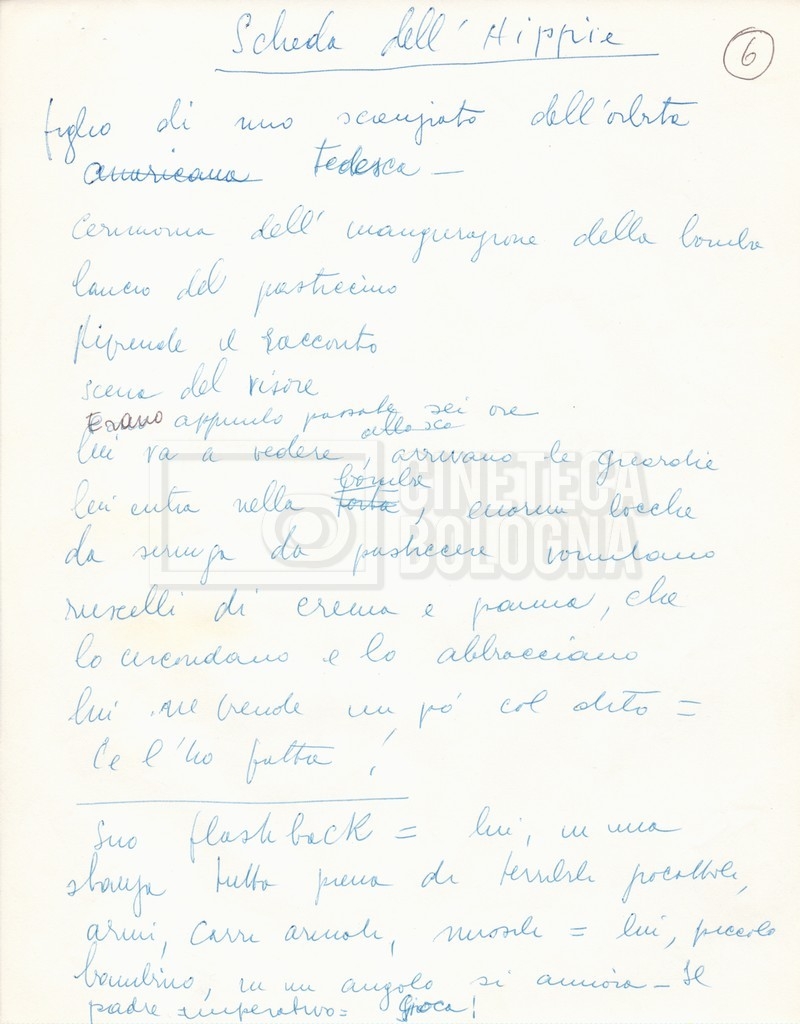 Scheda dell'Hippie
6
figlio di uno scienziato dell'orbita
americana tedesca —
Cerimonia dell'inaugurazione della bomba
lancio del pasticcino
Riprende il racconto
scena del visore
Erano appunto passate sei ore
lui va a vedere, arrivano le guardie
bomba
lui entra nella torta, enormi bocche
da siringa da pasticcere vomitano
ruscelli di crema e panna, che
lo circondano e lo abbracciano
lui ne prende un pò col dito =
Ce l'ho fatta!
Suo flashback = lui, in una
stanza tutta piena di terribili giocattoli,
armi, carri armati, missili = lui, piccolo
bambino, in un angolo si annoia — Il
padre imperativo = Gioca!
CINETECA
BOLOGNA